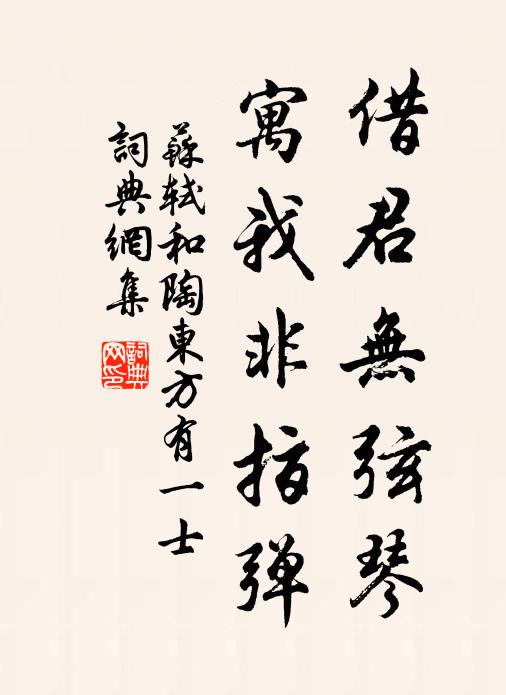 借君無弦琴
寓我非指彈
蘇軾和陶東方有一士
詞典網集
詞典
网印